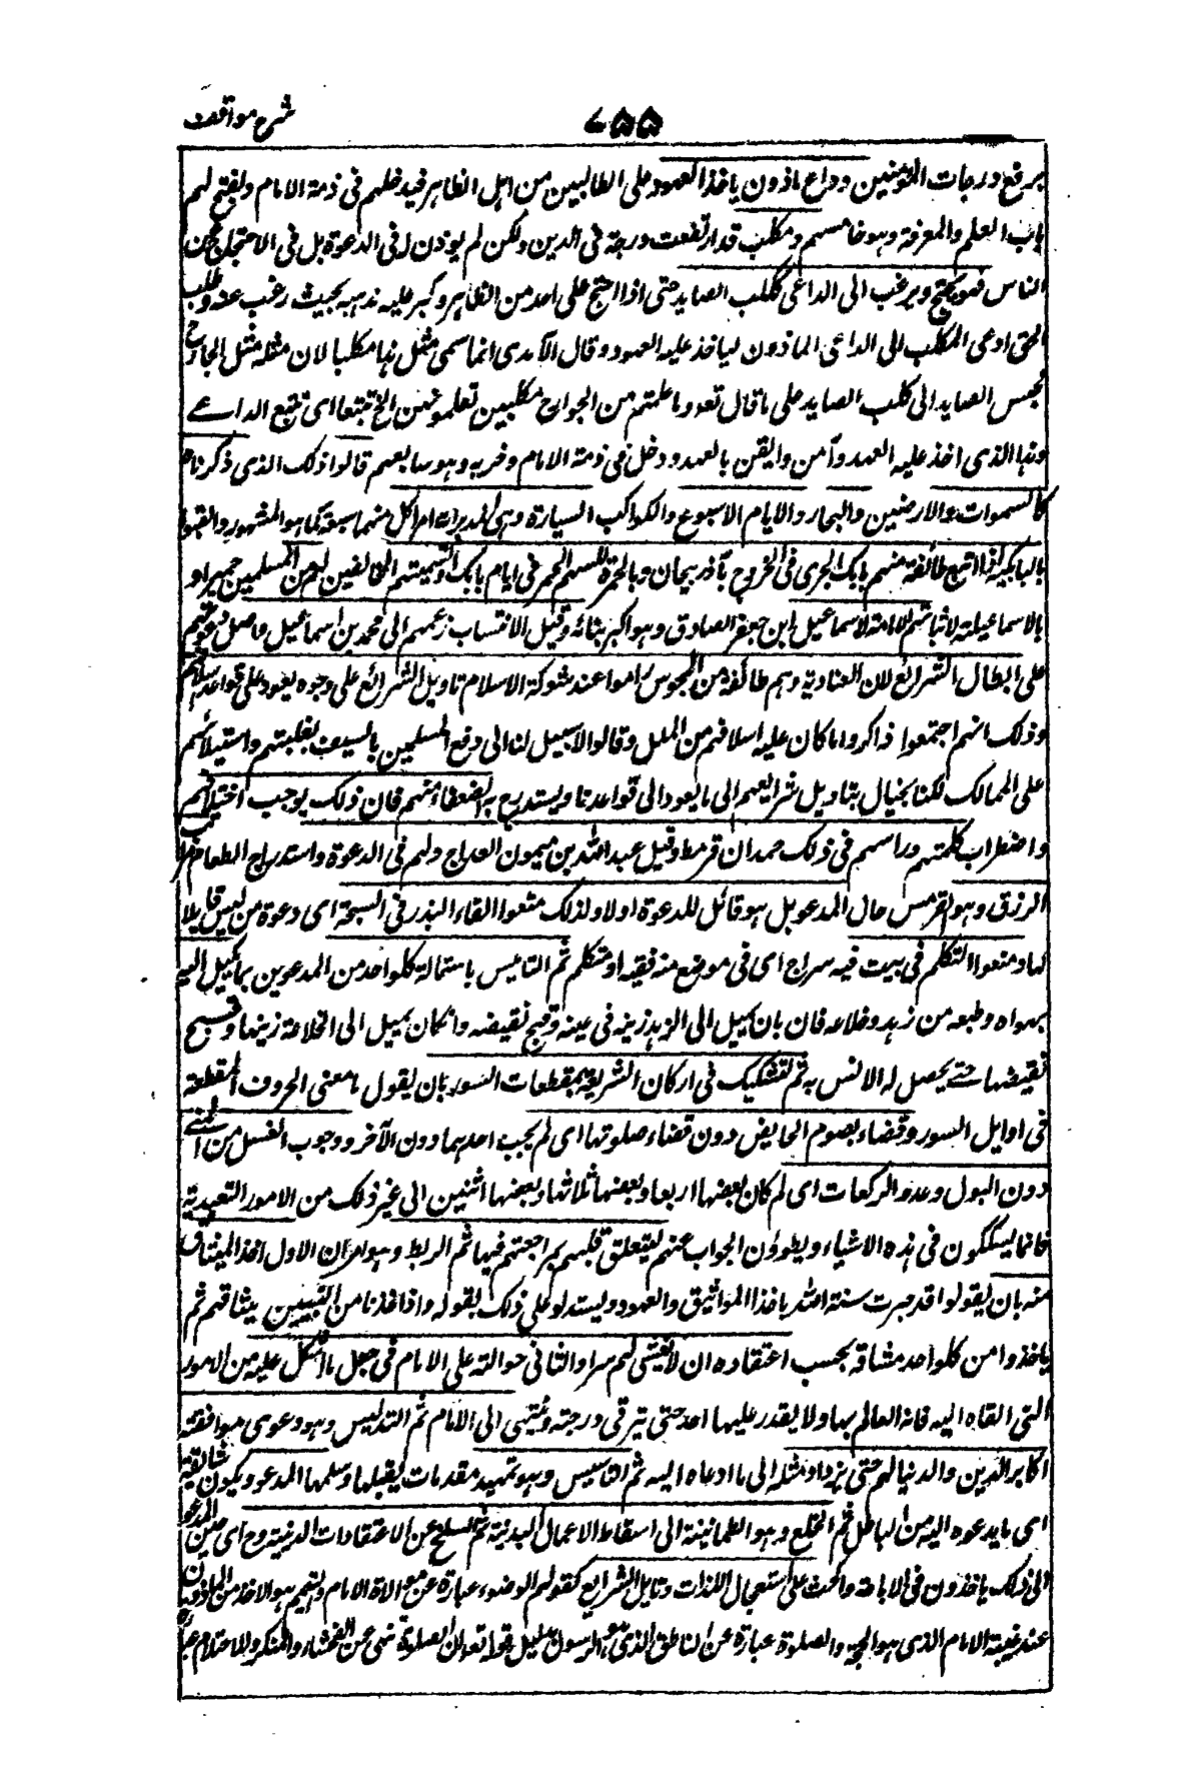 شرح مواقف
٧٥٥
يرفع درجات المؤمنين وداع ماذون ياخذ العهود على الطالبين من اهل الظاهر فيدخلهم فى ذمة الامام ويفتح لهم
باب العلم والمعرفة وهو خامسهم ومكلب قد ارتفعت درجته فى الدين ولكن لم يوذن له فى الدعوة بل فى الاحتجاج على
الناس فهو يحتج ويرغب الى الداعى ككلب الصايد حتى اذا احتج على احد من الظاهر وكسر عليه مذهبه بحيث رغب عنه وطلب
الحق ادى المكلب الى الداعى الماذون لياخذ عليه العهود وقال الآمدى انما سمى مثل هذا مكلبا لان مثله مثل الجارح
يحبس الصايد الى كلب الصايد على ما قال تعه وما علمتم من الجوارح مكلبين تعلمونهن الخ تبتعا اى تتبع الداعے
وهذا الذى اخذ عليه العهد وآمن وايقن بالعهد ودخل فى ذمة الامام وحزبه وهو سابعهم قالوا ذلك الذى ذكرناه
كالسموات والارضين والبحار والايام الاسبوع والكواكب السيارة وهى المدبرات امرا كل منها سبعة كما هو المشهور ولقبوا
بالبابكية اذا اتبع طائفة منهم بابك الخرمى فى الخروج بآذربيجان وبالحمرة للبسهم الحمر فى ايام بابك او لتسميتهم المخالفين لهم من المسلمين حميرا و
بالاسماعيلية لاثباتهم الامامة لاسماعيل ابن جعفر الصادق وهو اكبر ابنائه وقيل لانتساب زعيمهم الى محمد بن اسماعيل واصل دعوتهم
على ابطال الشرائع لان العنادية وهم طائفة من المجوس راموا عند شوكة الاسلام تاويل الشرائع على وجوه يعود على قواعد اسلافهم
وذلك انهم اجتمعوا فذاكروا ما كان عليه اسلافهم من الملك وقالوا لا سبيل لنا الى دفع المسلمين بالسيف لغلبتهم واستيلائهم
على الممالك لكنا نحتال بتاويل شرايعهم الى ما يعود الى قواعدنا ويستدرج به الضعفاء منهم فان ذلك يوجب اختلافهم
واضطراب كلمتهم وراسهم فى ذلك حمدان قرمط وقيل عبد الله بن ميمون القداح ولهم فى الدعوة واستدراج الطعام مراتب
الرزق وهو تفرس حال المدعو هل هو قابل للدعوة اولا ولذلك منعوا القاء البذر فى السبخة اى دعوة من ليس قابلا
لها ومنعوا التكلم فى بيت فيه سراج اى فى موضع منه فقيه او متكلم ثم التانيس باستمالة كلواحد من المدعوين بما يميل اليه
بهواه وطبعه من زهد وخلاعة فان كان يميل الى الزهد زينه فى عينه وقبح نقيضه وان كان يميل الى الخلاعة زينها وقبح
نقيضها حتے يحصل له الانس به ثم التشكيك فى اركان الشريعة بمقطعات السور بان يقول ما معنى الحروف المقطعة
فى اوايل السور وقضاء بصوم الحايض دون قضاء صلوتها اى لم يجب احدهما دون الآخر ووجوب الغسل من المنے
دون البول وعدد الركعات اى لم كان بعضها اربعا وبعضها ثلاثا وبعضها اثنين الى غير ذلك من الامور التعبدية
فانما يشككون فى هذه الاشياء ويطوون الجواب عنهم ليتعلق قلبهم بمراجعتهم فيها ثم الربط وهو امران الاول اخذ الميثاق
منه بان يقولوا قد جرت سنة الله باخذ المواثيق والعهود ويستدلوا على ذلك بقوله واذ اخذنا من النبيين ميثاقهم ثم
ياخذوا من كلواحد ميثاقه بحسب اعتقاده ان لا يفشى لهم سرا والثانى حوالة على الامام فى حل ما اشكل عليه من الامور
التى القاه اليه فانه العالم بها ولا يقدر عليها احد حتى ترقى درجته وينتهى الى الامام ثم التدليس وهو دعوى موافقة
اكابر الدين والدنيا لهم حتى يزداد ميله الى ما ادعاه اليه ثم التاسيس وهو تمهيد مقدمات يقبلها وسلمها المدعو ويكون سائقة
اى ما يدعوه اليه من الباطل ثم الخلع وهو الطمانينة الى اسقاط الاعمال البدنية ثم السلخ عن الاعتقادات الدينية وح اى حين المدعو
الى ذلك ياخذون فى الاباحة والحث على استعجال اللذات وتاويل الشرايع كقولهم الوضوء عبارة عن موالاة الامام والتيمم هو الاخذ من الماذون
عند غيبة الامام الذى هو الحجة والصلوة عبارة عن الناطق الذى هو الرسول بدليل قوله تعه ان الصلوة تنهى عن الفحشاء والمنكر والاحتلام عبارة